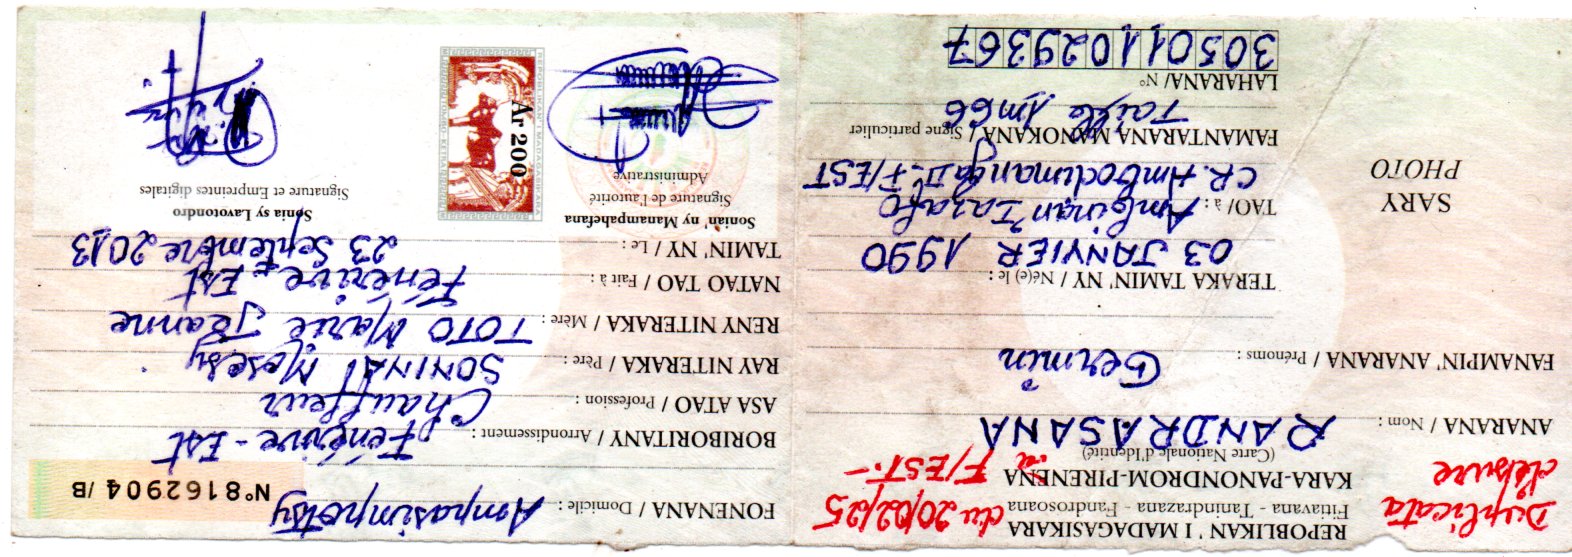 Duplicata
d'usure
REPOBLIKAN ' I MADAGASIKARA
Fitiavana - Tanindrazana - Fandrosoana
du 20/02/25
KARA-PANONDROM-PIRENENA
F/EST.-
(Carte Nationale d'Identité)
ANARANA / Nom : RANDRASANA
FANAMPIN' ANARANA / Prénoms : Germin
TERAKA TAMIN' NY / Né(e) le :
03 JANVIER 1990
TAO/ à : Ambinan'Iazafo
CR. Ambodimanga II - F/EST
SARY
PHOTO
FAMANTARANA MANOKANA / Signe particulier
Taille 1m66
LAHARANA/ N°
305011029367
FONENANA / Domicile : Ampasimpotsy
N°8162904 /B
BORIBORITANY / Arrondissement : Fénérive - Est
ASA ATAO / Profession : Chauffeur
RAY NITERAKA / Père : SONINA Mosesy
RENY NITERAKA / Mère : TOTO Marie Jeanne
NATAO TAO / Fait à : Fénérive - Est
TAMIN' NY / Le : 23 Septembre 2013
Sonian' ny Manampahefana
Signature de l'autorité
Administrative
Sonia sy Lavotondro
Signature et Empreintes digitales
REPOBLIKAN'I MADAGASIKARA
Ar 200